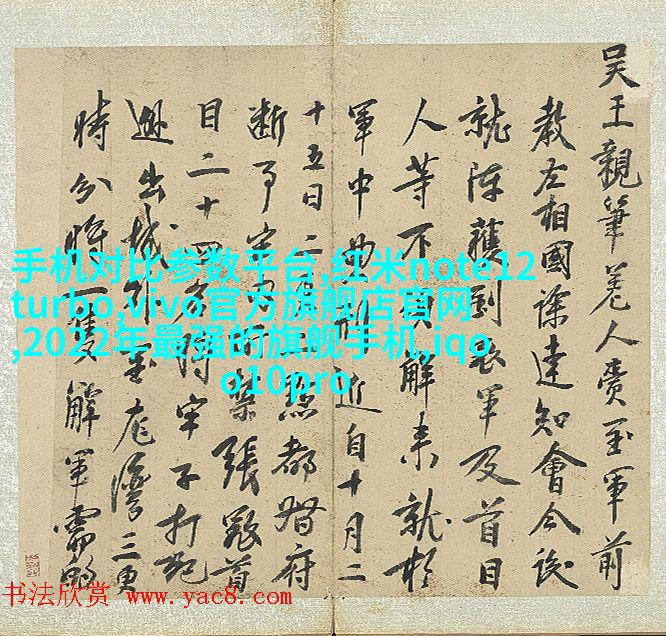 吴王親筆差人賫至軍前
教左相國徐達知會今後
就陣獲到寇軍及首目
人等不須解来就於
軍中典刑近自十月二
十五日二更三點都督府
断事官禁張聚首
目二十四名将牢子打死
過出城外至龍灣三更
時分將一隻解軍需的
手机对比参数平台,红米note12
turbo,vivo官方旗舰店官网
,2022年最强的旗舰手机,iqo
o10pro
书法欣赏 www.yac8.com